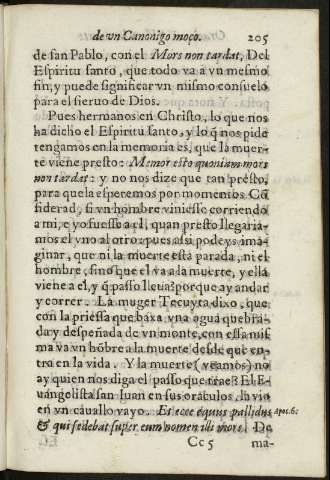 de vn Canonigo moço. 205
de san Pablo, con el Mors non tardat, Del
Espiritu santo, que todo va a vn mesmo
fin, y puede significar vn mismo consuelo
para el sieruo de Dios.
Pues hermanos en Christo, lo que nos
ha dicho el Espiritu santo, y lo q̃ nos pide
tengamos en la memoria es, que la muer-
te viene presto: Memor esto quoniam mors
non tardat: y no nos dize que tan presto,
para que la esperemos por momentos Cõ
siderad, si vn hombre viniesse corriendo
a mi, e yo fuesse a el, quan presto llegaria-
mos el vno al otro: pues assi podeys ima-
ginar, que ni la muerte està parada, ni el
hombre, sino que el va a la muerte, y ella
viene a el, y q̃ passo lleua? porque ay andar
y correr. La muger Tecuyta dixo, que
con la priessa que baxa vna agua quebra-
da y despeñada de vn monte, con essa mis
ma va vn hõbre a la muerte desde que en-
tra en la vida. Y la muerte (veamos) no
ay quien nos diga el passo que trae? El E-
uangelista san Iuan en sus oraculos, la vio
en vn cauallo vayo. Et ecce equus pallidus Apoc. 6.
& qui sedebat super eum nomen illi mors. De
Cc 5 ma-